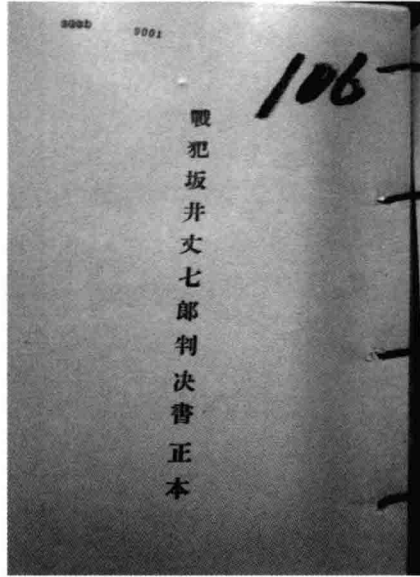 0001
106
戰犯坂井丈七郎判决書正本